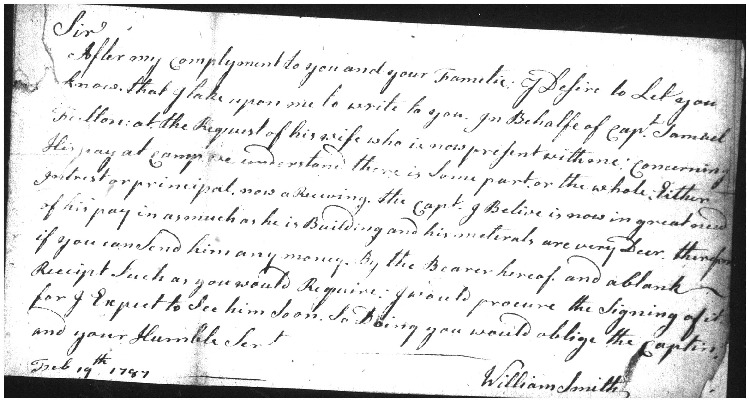 Sir
After my complyment to you and your Familie; I Desire to Let you
know that I take upon me to write to you. In Behalfe of Capt. Samuel
at the Request of his wife who is now present with me; Concerning
His pay at Camp we understand there is Some part. or the whole; Either
Intrest or principal. now a Rewing. the Capt. I Belive is now in great need
of his pay in as much as he is Building and his meterals are very Deer. therfore
if you can Send him any money. By the Bearer hereof. and a blank
Receipt Such as you would Require; I would procure the Signing of it
for I Expect to See him Soon. So Doing you would oblige the Captin.
and your Humble Sert
Feb 19th 1787
William Smith